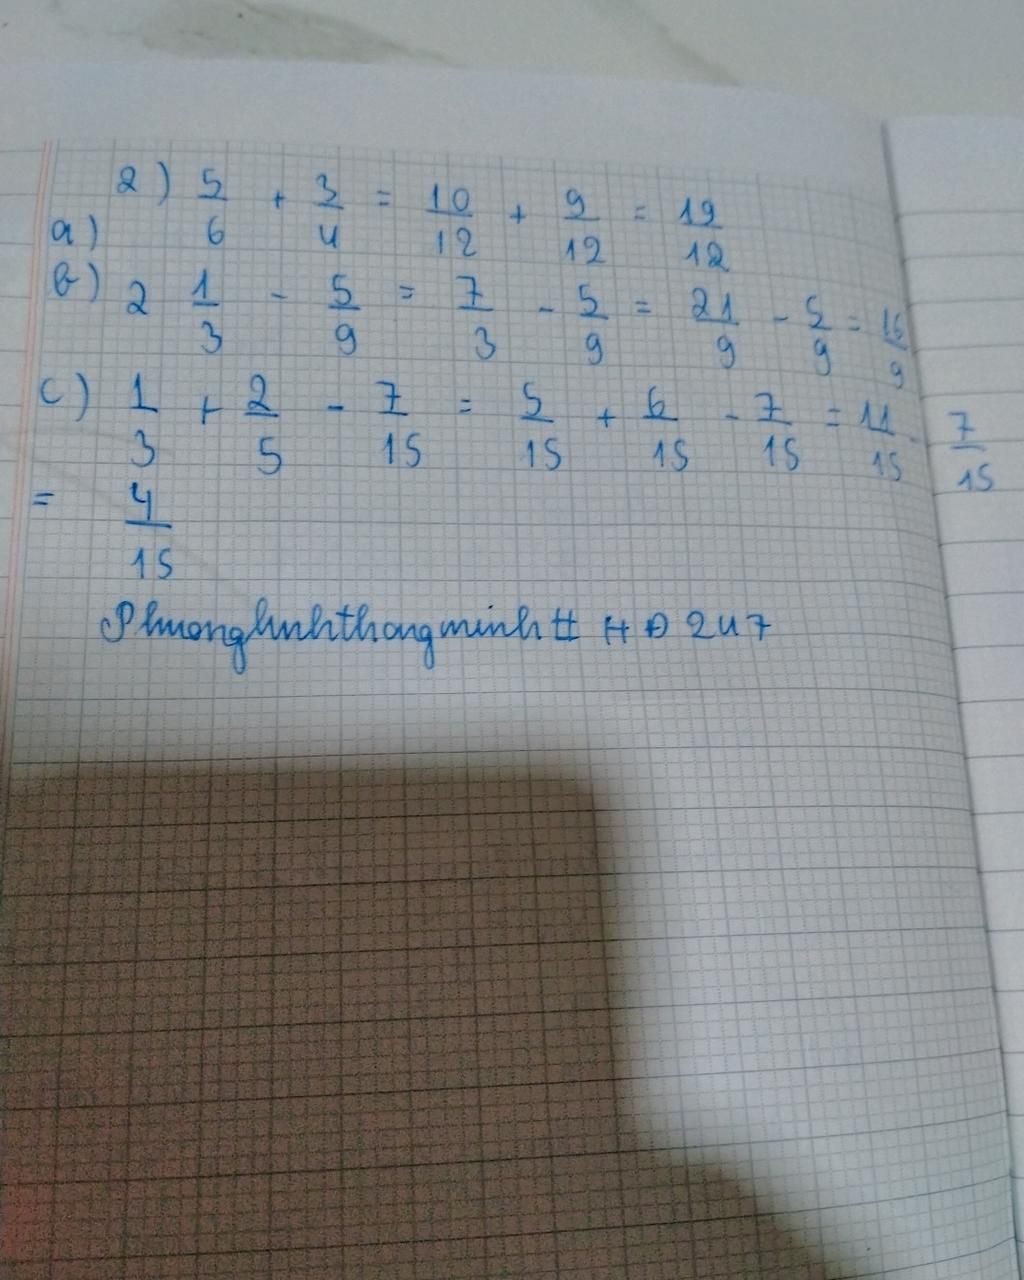 2) 5/6 + 3/4 = 10/12 + 9/12 = 19/12
a)
b) 2 1/3 - 5/9 = 7/3 - 5/9 = 21/9 - 5/9 = 16/9
c) 1/3 + 2/5 - 7/15 = 5/15 + 6/15 - 7/15 = 11/15 - 7/15
= 4/15
Phuonglinhthongminh tt HĐ 247